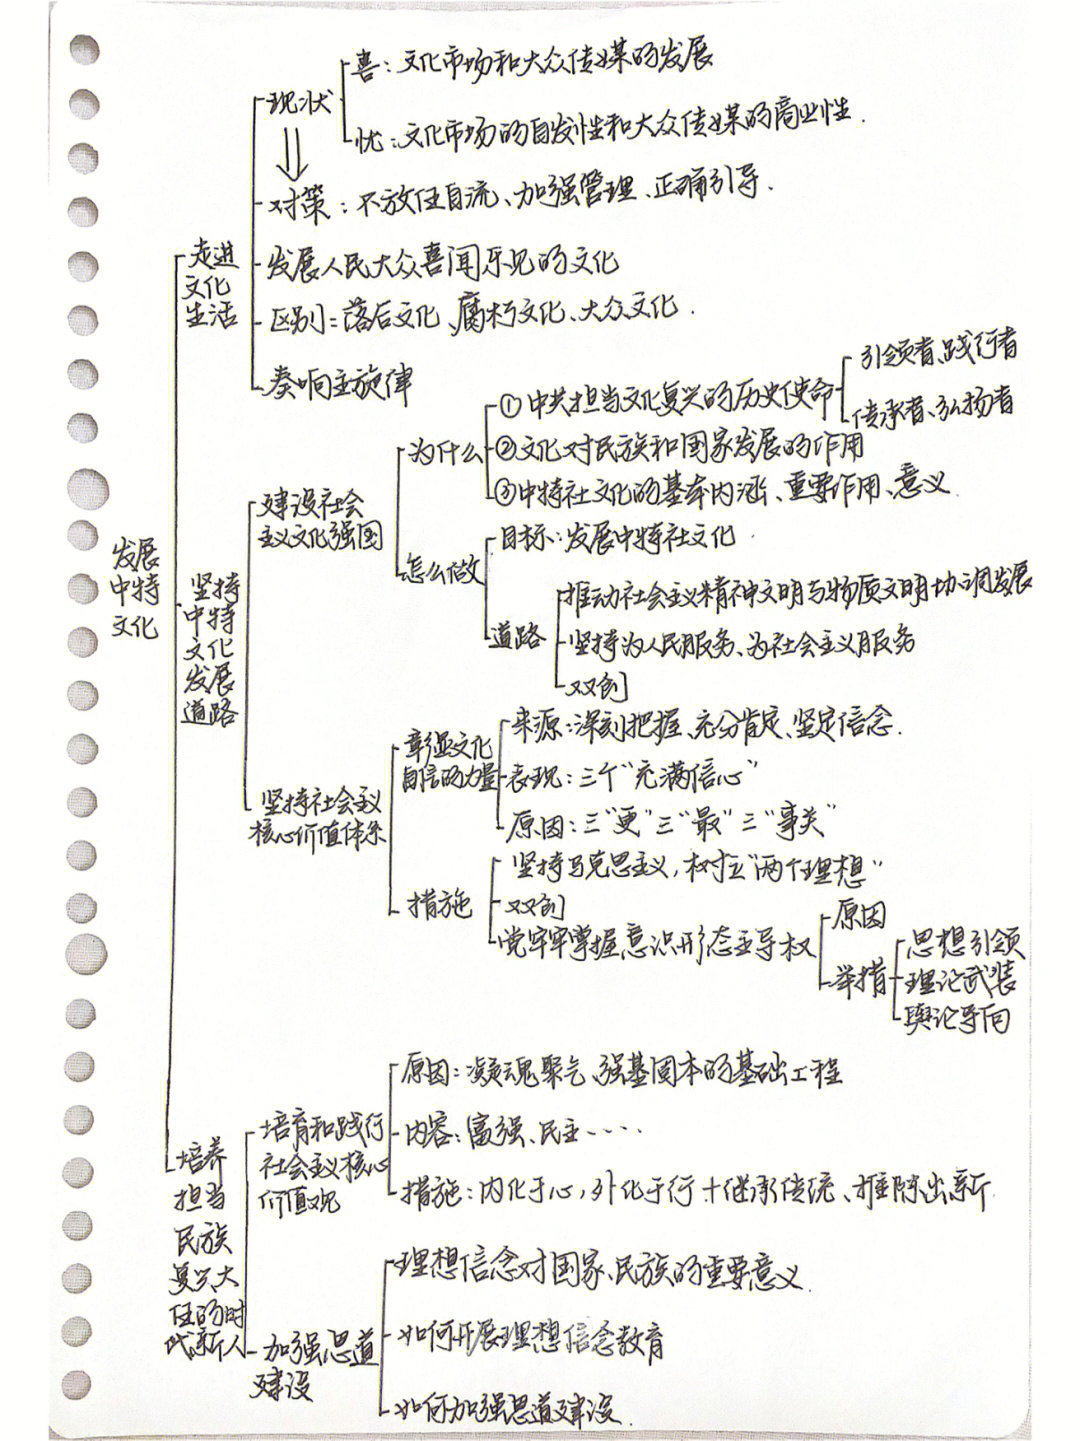 发展
中特
文化
走进
文化
生活
现状
喜：文化市场和大众传媒的发展
忧：文化市场的自发性和大众传媒的商业性.
对策：不放任自流、加强管理、正确引导.
发展人民大众喜闻乐见的文化
区别：落后文化、腐朽文化、大众文化.
奏响主旋律
坚持
中特
文化
发展
道路
建设社会
主义文化强国
为什么
①中共担当文化复兴的历史使命
引领者、践行者
传承者、弘扬者
②文化对民族和国家发展的作用
③中特社文化的基本内涵、重要作用、意义.
怎么做
目标：发展中特社文化.
道路
推动社会主义精神文明与物质文明协调发展
坚持为人民服务、为社会主义服务
双创
坚持社会主义
核心价值体系
彰显文化
自信的力量
来源：深刻把握、充分肯定、坚定信念.
表现：三个“充满信心”
原因：三“更”三“最”三“事关”
措施
坚持马克思主义，树立“两个理想”
双创
党牢牢掌握意识形态主导权
原因
举措
思想引领
理论武装
舆论导向
培养
担当
民族
复兴大
任的时
代新人
培育和践行
社会主义核心
价值观
原因：凝魂聚气、强基固本的基础工程
内容：富强、民主····
措施：内化于心，外化于行+继承传统、推陈出新.
加强思道
建设
理想信念对国家、民族的重要意义.
如何开展理想信念教育
如何加强思道建设.